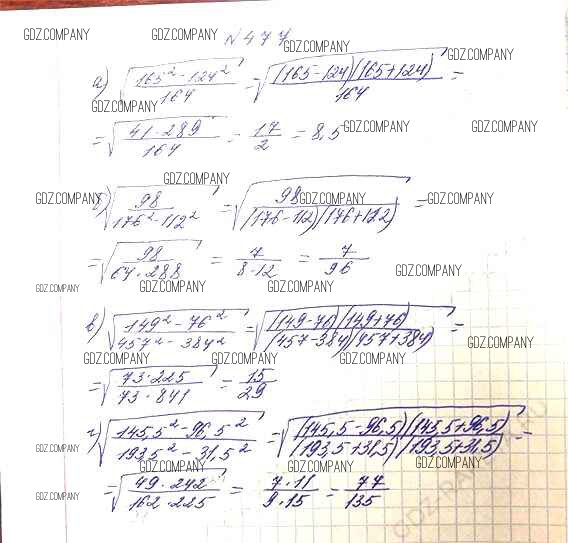 GDZ.COMPANY GDZ.COMPANY N477 GDZ.COMPANY GDZ.COMPANY
а) √((165² - 124²)/164) = √((165-124)(165+124)/164) =
GDZ.COMPANY
= √((41·289)/164) = 17/2 = 8,5 GDZ.COMPANY GDZ.COMPANY
GDZ.COMPANY
GDZ.COMPANY б) √(98/(176² - 112²)) = √(98/((176-112)(176+112))) = GDZ.COMPANY GDZ.COMPANY
= √(98/(64·288)) = 7/(8·12) = 7/96 GDZ.COMPANY
GDZ.COMPANY GDZ.COMPANY GDZ.COMPANY GDZ.COMPANY
в) √((149² - 76²)/(457² - 384²)) = √((149-76)(149+76)/((457-384)(457+384))) =
GDZ.COMPANY GDZ.COMPANY GDZ.COMPANY GDZ.COMPANY
= √((73·225)/(73·841)) = 15/29
GDZ.COMPANY GDZ.COMPANY
г) √((145,5² - 96,5²)/(193,5² - 31,5²)) = √((145,5-96,5)(145,5+96,5)/((193,5+31,5)(193,5+31,5))) =
GDZ.COMPANY GDZ.COMPANY GDZ.COMPANY GDZ.COMPANY
= √((49·242)/(162·225)) = (7·11)/(9·15) = 77/135
GDZ.COMPANY